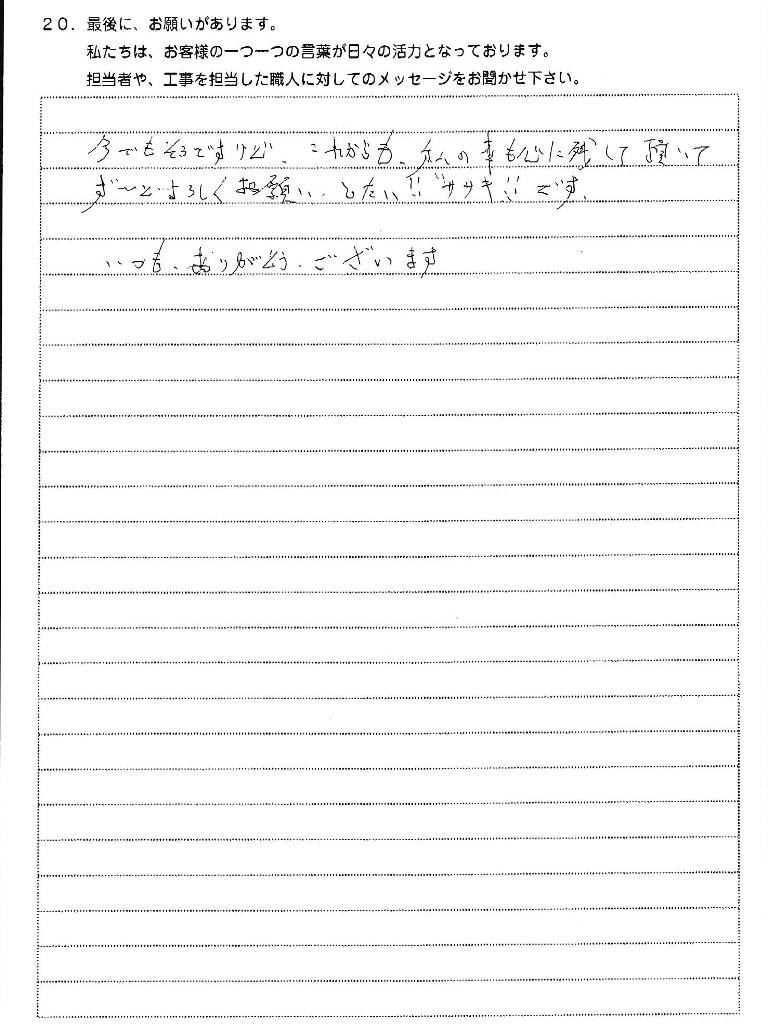 20. 最後に、お願いがあります。
私たちは、お客様の一つ一つの言葉が日々の活力となっております。
担当者や、工事を担当した職人に対してのメッセージをお聞かせ下さい。
今でもそうですけど、これからも、私の事も心に残して頂いて
ず〜とよろしくお願いしたい!!"ササキ!!です。
いつも、ありがとう、ございます